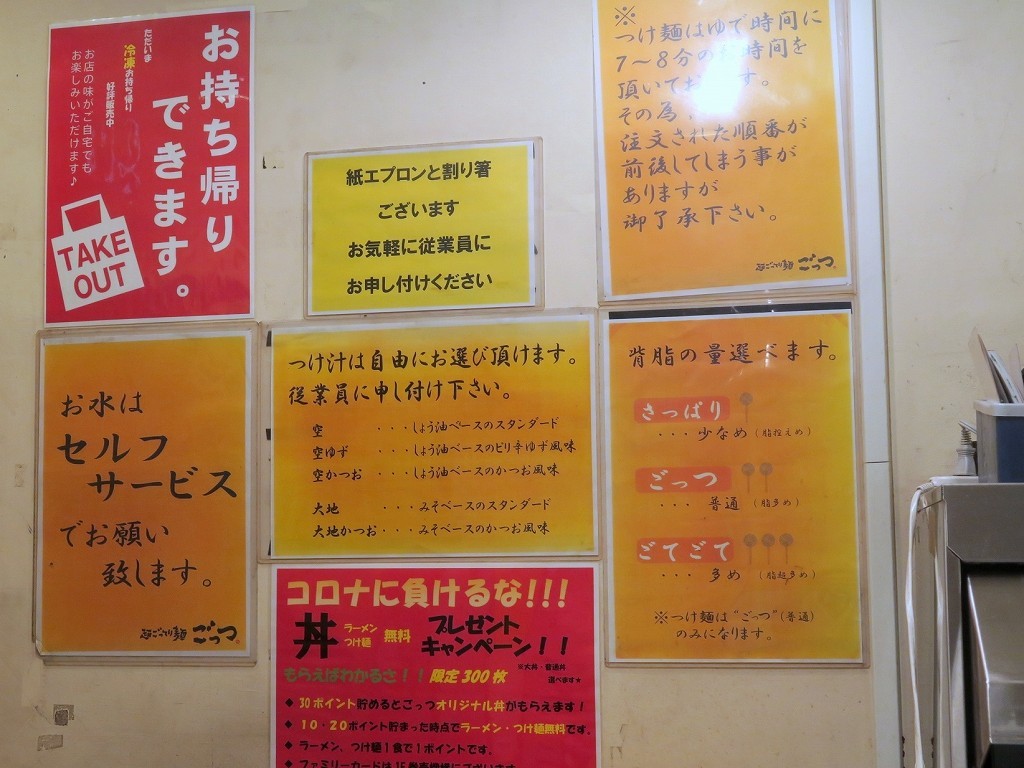 お持ち帰り
できます。
ただいま
冷凍お持ち帰り
好評販売中
お店の味がご自宅でも
お楽しみいただけます♪
TAKE
OUT
紙エプロンと割り箸
ございます
お気軽に従業員に
お申し付けください
※
つけ麺はゆで時間に
7～8分の 時間を
頂いております。
その為
注文された順番が
前後してしまう事が
ありますが
御了承下さい。
ごっつ
お水は
セルフ
サービス
でお願い
致します。
ごっつ
つけ汁は自由にお選び頂けます。
従業員に申し付け下さい。
空 ・・・しょう油ベースのスタンダード
空ゆず ・・・しょう油ベースのピリ辛ゆず風味
空かつお ・・・しょう油ベースのかつお風味
大地 ・・・みそベースのスタンダード
大地かつお・・・みそベースのかつお風味
背脂の量選べます。
さっぱり
・・・少なめ（脂控えめ）
ごっつ
・・・普通（脂多め）
ごてごて
・・・多め（脂超多め）
※つけ麺は"ごっつ"（普通）
のみになります。
コロナに負けるな!!!
丼 ラーメン つけ麺 無料 プレゼント
キャンペーン！！
※大丼・普通丼
選べます★
もらえばわかるさ！！限定300枚
◆30ポイント貯めるとごっつオリジナル丼がもらえます！
◆10・20ポイント貯まった時点でラーメン・つけ麺無料です。
◆ラーメン、つけ麺1食で1ポイントです。
◆ファミリーカードは1F